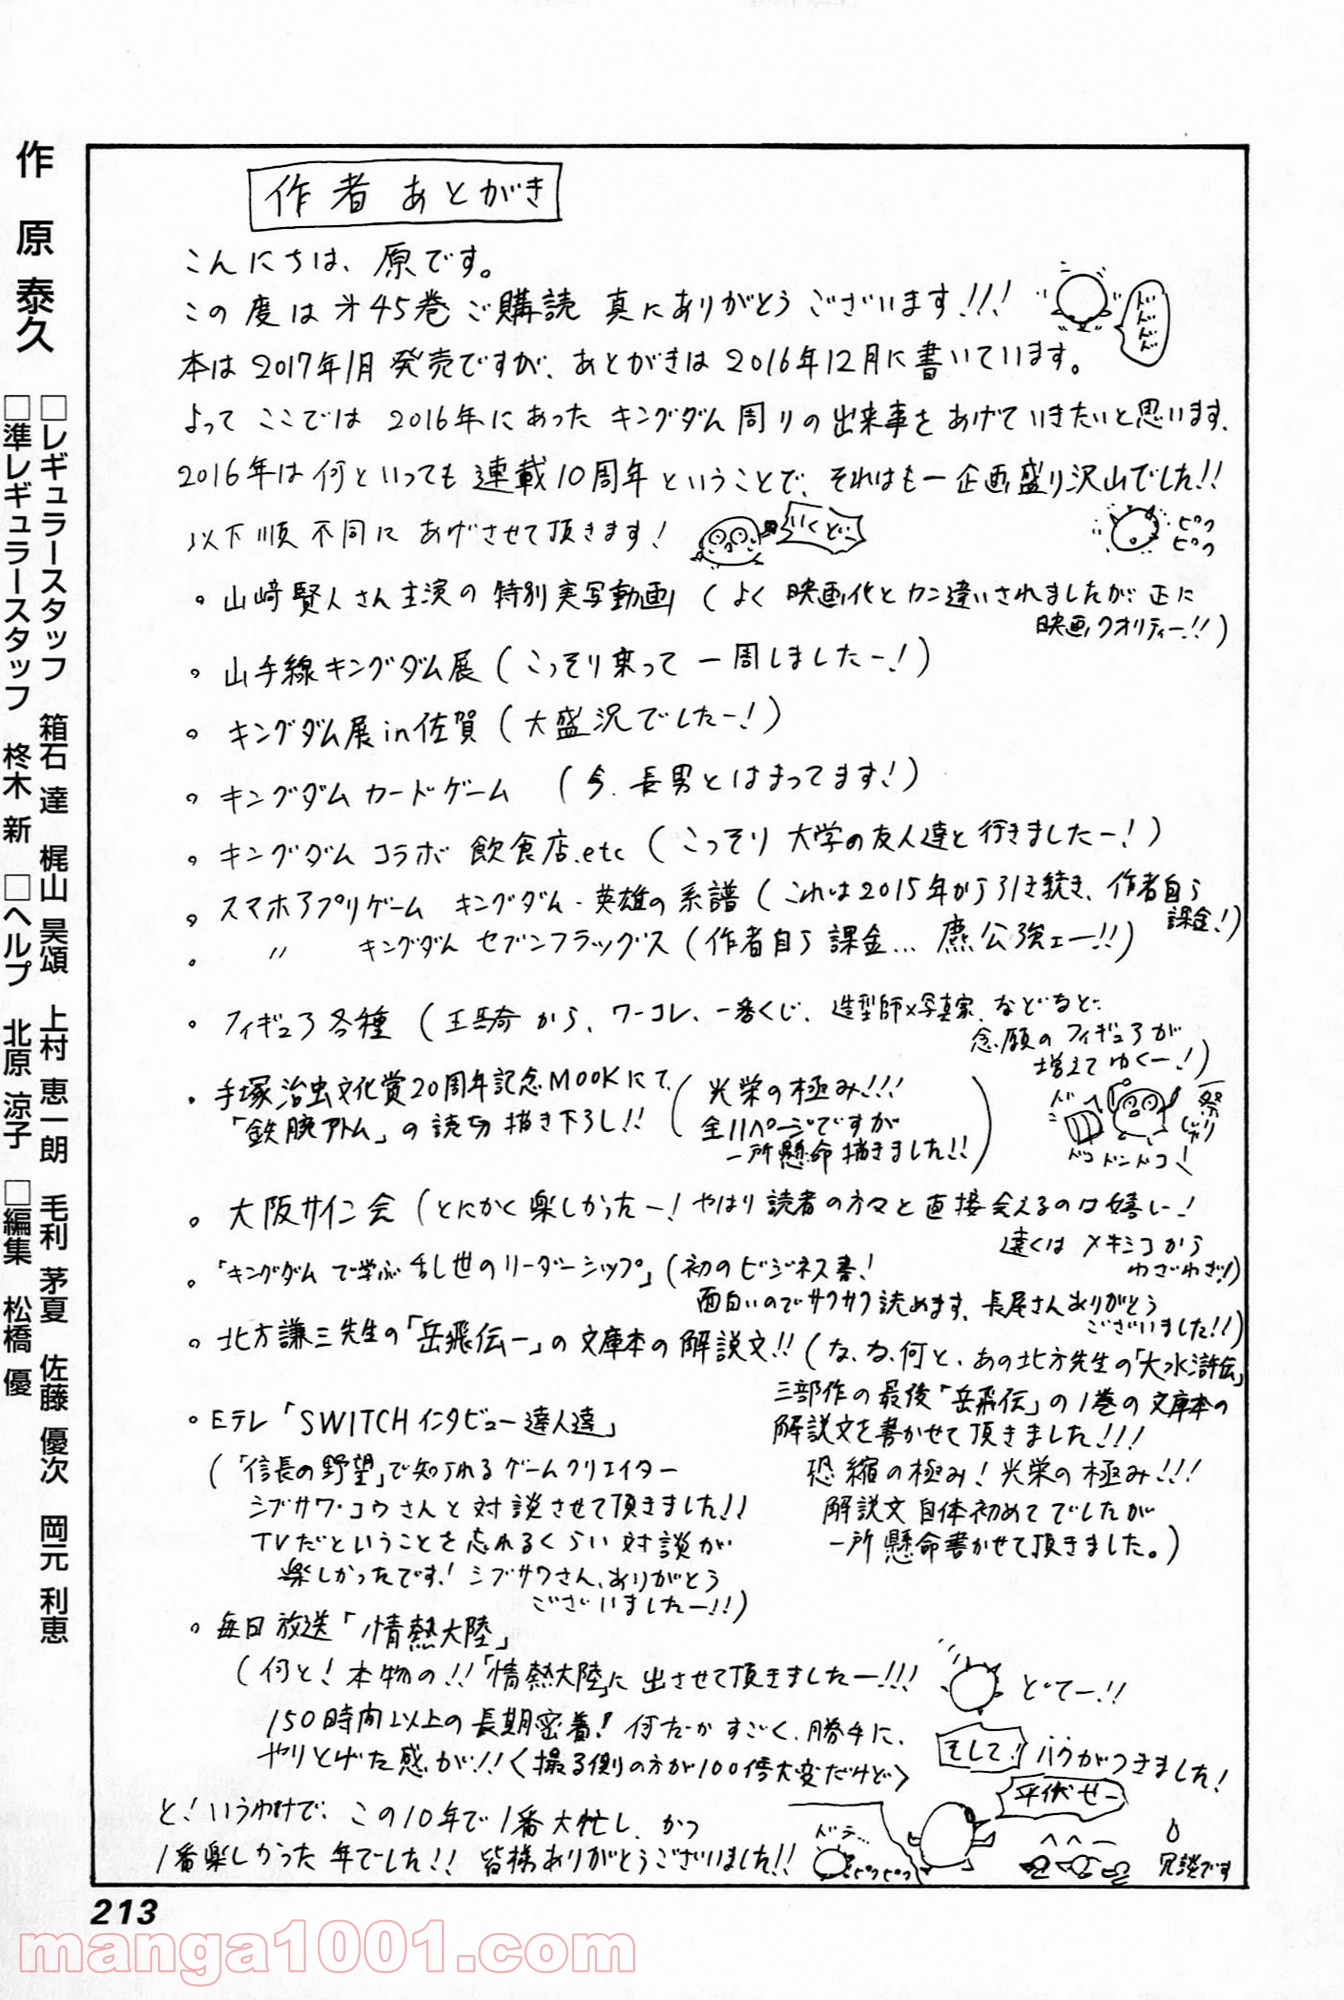 作者あとがき
こんにちは、原です。
この度は才45巻ご購読 真にありがとうございます!!!
ドドドドド
本は2017年1月発売ですが、あとがきは2016年12月に書いています。
よって ここでは 2016年にあった キングダム周りの出来事をあげていきたいと思います。
2016年は何といっても連載10周年ということで、それはもー企画盛り沢山でした!!
以下順不同に あげさせて頂きます!
いくど…
ピク
ピク
・山﨑賢人さん主演の特別実写動画(よく 映画化とカン違いされましたが正に
映画クオリティー!!)
・山手線キングダム展(こっそり乗って 一周しましたー!)
・キングダム展in佐賀(大盛況でしたー!)
・キングダム カードゲーム (今、長男とはまってます!)
・キングダム コラボ 飲食店.etc(こっそり 大学の友人達と行きましたー!)
・スマホアプリゲーム キングダム・英雄の系譜(これは2015年から引き続き、作者自ら
課金!)
・〃 キングダム セブンフラッグス(作者自ら課金… 麃公強ェー!!)
・フィギュア各種(王騎から、ワーコレ、一番くじ、造型師×写真家、などなど…
念願の フィギュアが
増えてゆくー!)
・手塚治虫文化賞20周年記念MOOKにて
「鉄腕アトム」の読切描き下ろし!!
(光栄の極み!!!
全11ページですが
一所懸命描きました!!)
ドンドコドンドコ!
祭じゃり
・大阪サイン会(とにかく楽しかったー!やはり読者の方々と直接会えるのは嬉しい!
遠くはメキシコから
わざわざ!)
・「キングダムで学ぶ乱世のリーダーシップ」(初のビジネス書!
面白いのでサクサク読めます、長尾さんありがとう
ございました!!)
・北方謙三先生の「岳飛伝一」の文庫本の解説文!!(な、な、何と、あの北方先生の「大水滸伝」
三部作の最後「岳飛伝」の1巻の文庫本の
解説文を書かせて頂きました!!!
恐縮の極み!光栄の極み!!!
解説文自体初めてでしたが
一所懸命書かせて頂きました。)
・Eテレ「SWITCHインタビュー達人達」
(「信長の野望」で知られるゲームクリエイター
シブサワ・コウさんと対談させて頂きました!!
TVだということを忘れるくらい対談が
楽しかったです!シブサワさん、ありがとう
ございましたー!!)
・毎日放送「情熱大陸」
(何と!本物の!!「情熱大陸」に出させて頂きましたー!!!
150時間以上の長期密着!何だかすごく、勝手に、
やりとげた感が!!〈撮る側の方が100倍大変だけど〉
どてー!!
そして!!
ハクがつきました!
平伏せー
へへー
冗談です
ドラ…
ピクピク
と!いうわけで、この10年で1番大忙し、かつ
1番楽しかった年でした!!皆様ありがとうございました!!
作 原 泰久
□レギュラースタッフ 箱石 達 梶山 昊頌 上村 恵一朗 毛利 茅夏 佐藤 優次 岡元 利恵
□準レギュラースタッフ 柊木 新 □ヘルプ 北原 涼子 □編集 松橋 優
213
manga1001.com